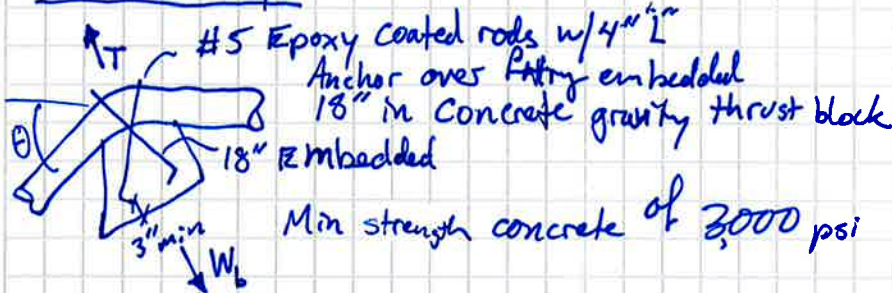 #5 Epoxy Coated rods w/4" "L"
T
Anchor over embedded
18" in Concrete gravity thrust block
θ
18" Embedded
Min strength concrete of 3,000 psi
3" min
Wb